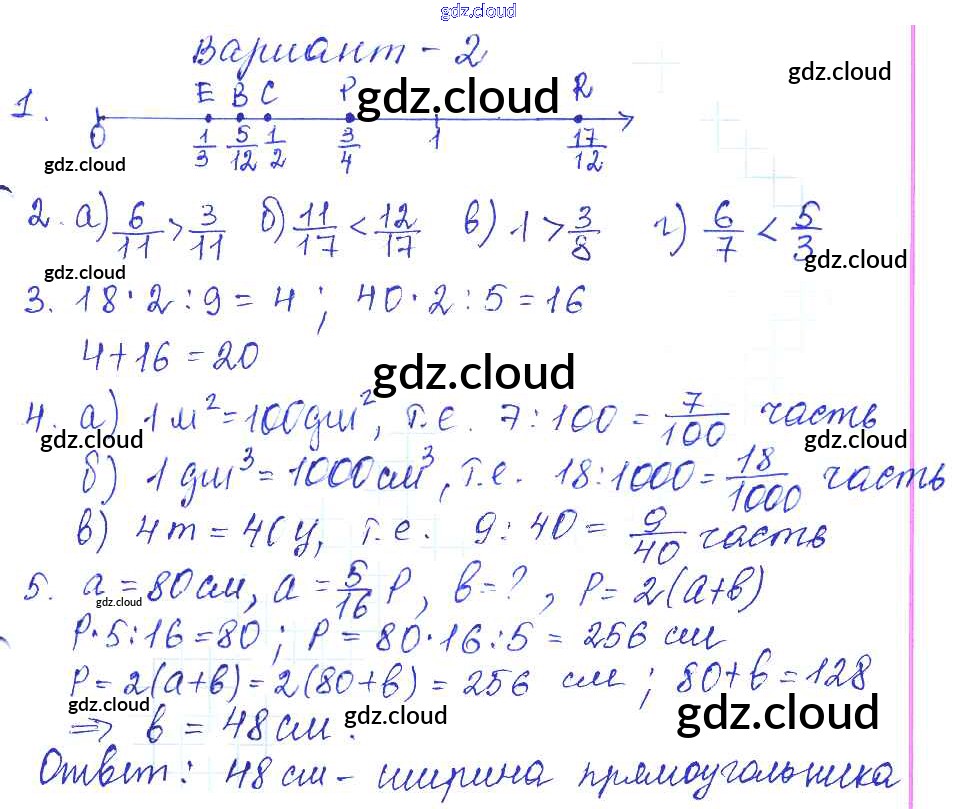 gdz.cloud
Вариант - 2
gdz.cloud
1. E B C P gdz.cloud R
0 1/3 5/12 1/2 3/4 1 17/12
gdz.cloud
2. а) 6/11 > 3/11 б) 11/17 < 12/17 в) 1 > 3/8 г) 6/7 < 5/3
gdz.cloud gdz.cloud
3. 18 · 2 : 9 = 4 ; 40 · 2 : 5 = 16
4 + 16 = 20
gdz.cloud
4. а) 1 м² = 100 дм², т.е. 7 : 100 = 7/100 часть
gdz.cloud gdz.cloud
б) 1 дм³ = 1000 см³, т.е. 18 : 1000 = 18/1000 часть
в) 4 т = 40 ц, т.е. 9 : 40 = 9/40 часть
5. a = 80 см, a = 5/16 P, в = ? , P = 2(a+в)
gdz.cloud
P · 5 : 16 = 80 ; P = 80 · 16 : 5 = 256 см
P = 2(a+в) = 2(80+в) = 256 см ; 80 + в = 128
gdz.cloud gdz.cloud gdz.cloud
⇒ в = 48 см.
Ответ: 48 см - ширина прямоугольника